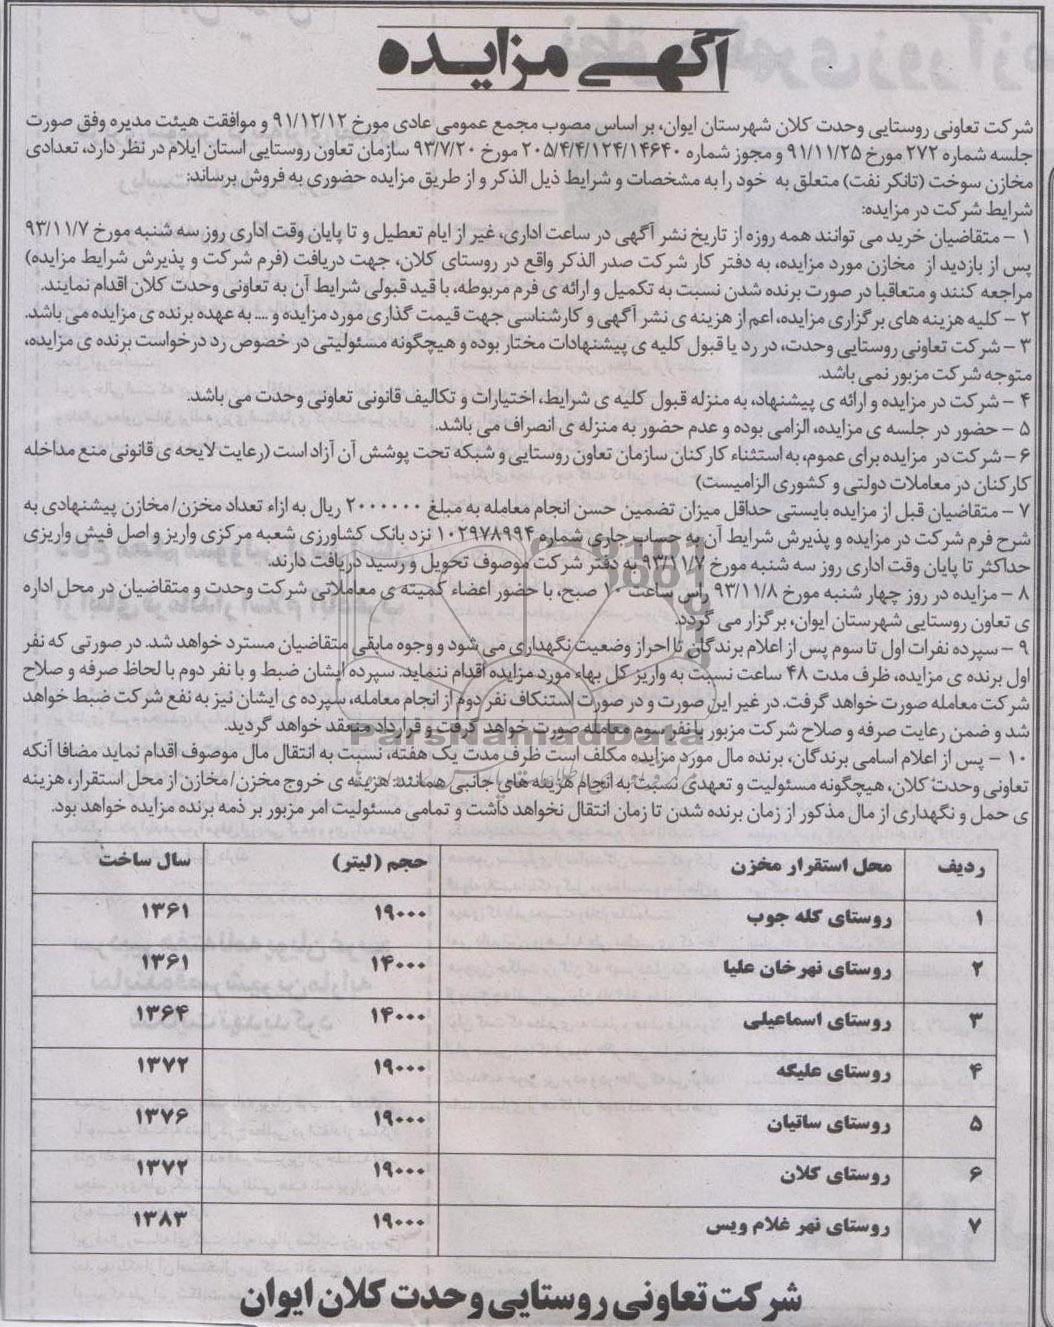 آگهی مزایده
شرکت تعاونی روستایی وحدت کلان شهرستان ایوان، بر اساس مصوب مجمع عمومی عادی مورخ ۹۱/۱۲/۱۲ و موافقت هیئت مدیره وفق صورت
جلسه شماره ۲۷۲ مورخ ۹۱/۱۱/۲۵ و مجوز شماره ۲۰۵/۴/۴/۱۲۴/۱۴۶۴۰ مورخ ۹۳/۷/۲۰ سازمان تعاون روستایی استان ایلام در نظر دارد، تعدادی
مخازن سوخت (تانکر نفت) متعلق به خود را به مشخصات و شرایط ذیل الذکر و از طریق مزایده حضوری به فروش برساند:
شرایط شرکت در مزایده:
۱ – متقاضیان خرید می توانند همه روزه از تاریخ نشر آگهی در ساعت اداری، غیر از ایام تعطیل و تا پایان وقت اداری روز سه شنبه مورخ ۹۳/۱۱/۷
پس از بازدید از مخازن مورد مزایده، به دفتر کار شرکت صدر الذکر واقع در روستای کلان، جهت دریافت (فرم شرکت و پذیرش شرایط مزایده)
مراجعه کنند و متعاقبا در صورت برنده شدن نسبت به تکمیل و ارائه ی فرم مربوطه، با قید قبولی شرایط آن به تعاونی وحدت کلان اقدام نمایند.
۲ – کلیه هزینه های برگزاری مزایده، اعم از هزینه ی نشر آگهی و کارشناسی جهت قیمت گذاری مورد مزایده و .... به عهده برنده ی مزایده می باشد.
۳ – شرکت تعاونی روستایی وحدت، در رد یا قبول کلیه ی پیشنهادات مختار بوده و هیچگونه مسئولیتی در خصوص رد درخواست برنده ی مزایده،
متوجه شرکت مزبور نمی باشد.
۴ – شرکت در مزایده و ارائه ی پیشنهاد، به منزله قبول کلیه ی شرایط، اختیارات و تکالیف قانونی تعاونی وحدت می باشد.
۵ – حضور در جلسه ی مزایده، الزامی بوده و عدم حضور به منزله ی انصراف می باشد.
۶ – شرکت در مزایده برای عموم، به استثناء کارکنان سازمان تعاون روستایی و شبکه تحت پوشش آن آزاد است (رعایت لایحه ی قانونی منع مداخله
کارکنان در معاملات دولتی و کشوری الزامیست)
۷ – متقاضیان قبل از مزایده بایستی حداقل میزان تضمین حسن انجام معامله به مبلغ ۲۰۰۰۰۰۰ ریال به ازاء تعداد مخزن/ مخازن پیشنهادی به
شرح فرم شرکت در مزایده و پذیرش شرایط آن به حساب جاری شماره ۱۰۲۹۷۸۹۹۴ نزد بانک کشاورزی شعبه مرکزی واریز و اصل فیش واریزی
حداکثر تا پایان وقت اداری روز سه شنبه مورخ ۹۳/۱۱/۷ به دفتر شرکت موصوف تحویل و رسید دریافت دارند.
۸ – مزایده در روز چهار شنبه مورخ ۹۳/۱۱/۸ راس ساعت ۱۰ صبح، با حضور اعضاء کمیته ی معاملاتی شرکت وحدت و متقاضیان در محل اداره
ی تعاون روستایی شهرستان ایوان، برگزار می گردد.
۹ – سپرده نفرات اول تا سوم پس از اعلام برندگان تا احراز وضعیت نگهداری می شود و وجوه مابقی متقاضیان مسترد خواهد شد. در صورتی که نفر
اول برنده ی مزایده، ظرف مدت ۴۸ ساعت نسبت به واریز کل بهاء مورد مزایده اقدام ننماید. سپرده ایشان ضبط و با نفر دوم با لحاظ صرفه و صلاح
شرکت معامله صورت خواهد گرفت. در غیر این صورت و در صورت استنکاف نفر دوم از انجام معامله، سپرده ی ایشان نیز به نفع شرکت ضبط خواهد
شد و ضمن رعایت صرفه و صلاح شرکت مزبور با نفر سوم معامله صورت خواهد گرفت و قرارداد منعقد خواهد گردید.
۱۰ – پس از اعلام اسامی برندگان، برنده مال مورد مزایده مکلف است ظرف مدت یک هفته، نسبت به انتقال مال موصوف اقدام نماید مضافا آنکه
تعاونی وحدت کلان، هیچگونه مسئولیت و تعهدی نسبت به انجام هزینه های جانبی همانند: هزینه ی خروج مخزن/ مخازن از محل استقرار، هزینه
ی حمل و نگهداری از مال مذکور از زمان برنده شدن تا زمان انتقال نخواهد داشت و تمامی مسئولیت امر مزبور بر ذمه برنده مزایده خواهد بود.
ردیف محل استقرار مخزن حجم (لیتر) سال ساخت
۱ روستای کله جوب ۱۹۰۰۰ ۱۳۶۱
۲ روستای نهرخان علیا ۱۴۰۰۰ ۱۳۶۱
۳ روستای اسماعیلی ۱۴۰۰۰ ۱۳۶۴
۴ روستای علیگه ۱۹۰۰۰ ۱۳۷۲
۵ روستای ساتیان ۱۹۰۰۰ ۱۳۷۶
۶ روستای کلان ۱۹۰۰۰ ۱۳۷۲
۷ روستای نهر غلام ویس ۱۹۰۰۰ ۱۳۸۳
شرکت تعاونی روستایی وحدت کلان ایوان
ParsNamadData